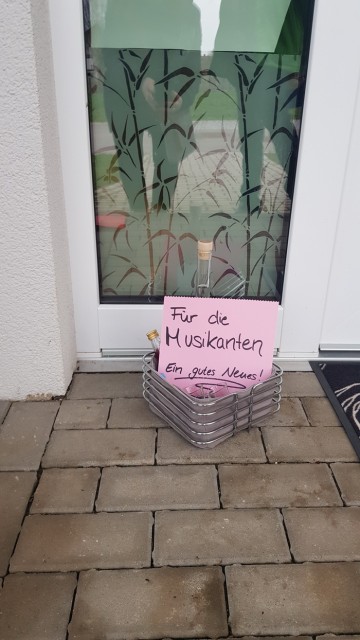 Für die
Musikanten
Ein gutes Neues!